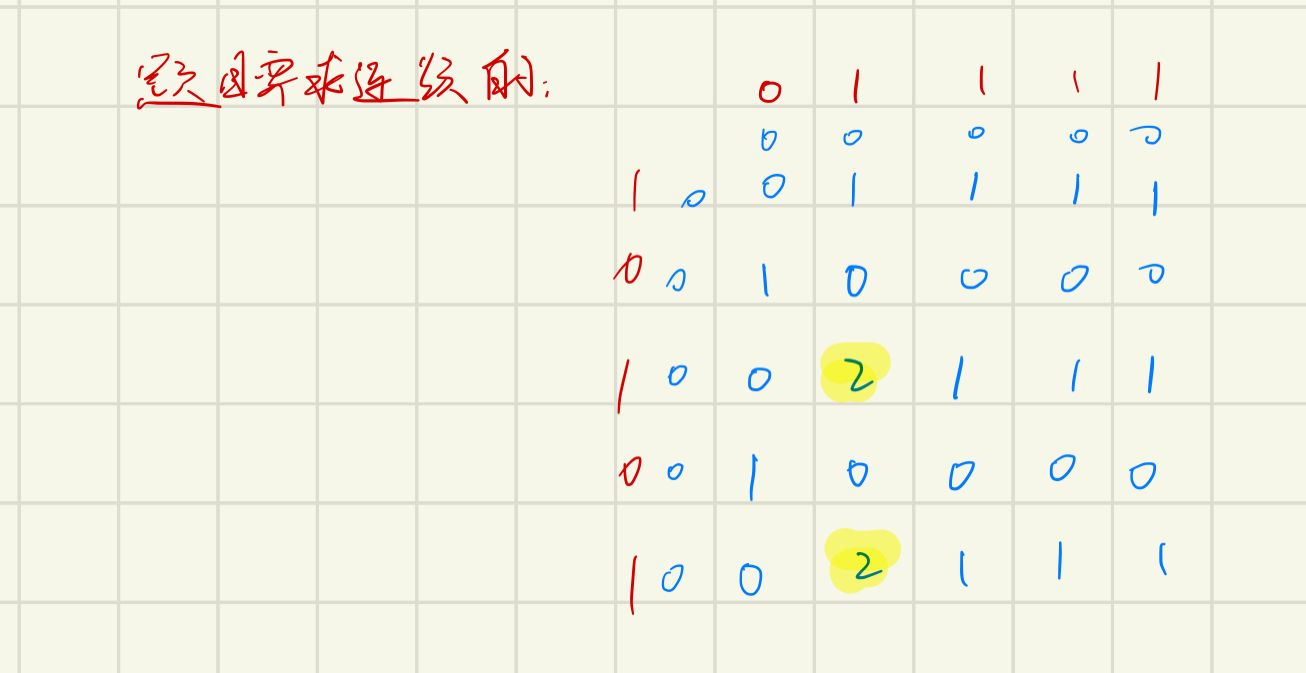 题目要求连续的: 0 1 1 1 1
0 0 0 0 0
1 0 0 1 1 1 1
0 0 1 0 0 0 0
1 0 0 2 1 1 1
0 0 1 0 0 0 0
1 0 0 2 1 1 1